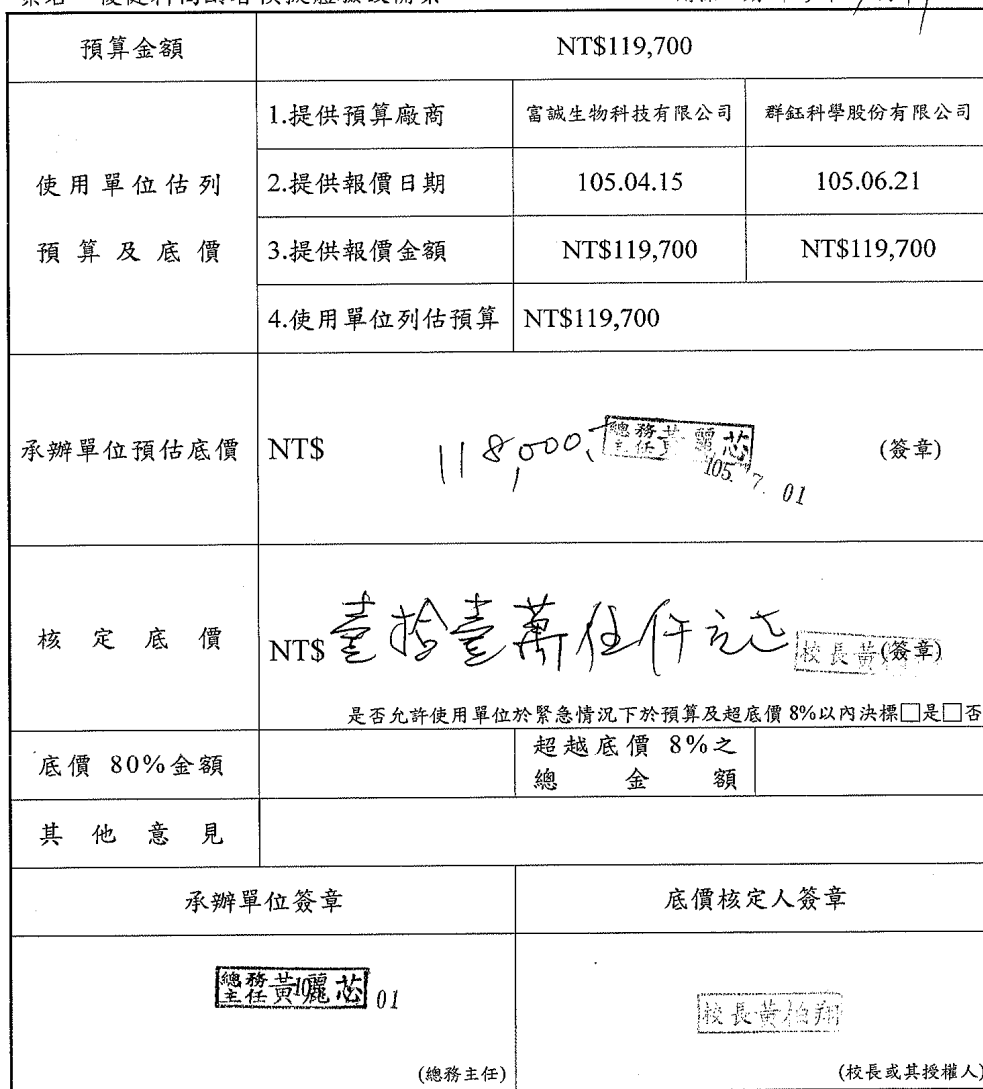 預算金額 NT$119,700
使用單位估列
預算及底價
1.提供預算廠商 富誠生物科技有限公司 群鈺科學股份有限公司
2.提供報價日期 105.04.15 105.06.21
3.提供報價金額 NT$119,700 NT$119,700
4.使用單位列估預算 NT$119,700
承辦單位預估底價 NT$ 118,000 總務主任黃麗芯 (簽章)
105. 7. 01
核定底價 NT$ 壹拾壹萬伍仟元 校長黃 (簽章)
是否允許使用單位於緊急情況下於預算及超底價 8%以內決標□是□否
底價 80%金額 超越底價 8%之
總金額
其他意見
承辦單位簽章 底價核定人簽章
總務主任黃麗芯 01
校長黃柏翔
(總務主任) (校長或其授權人)